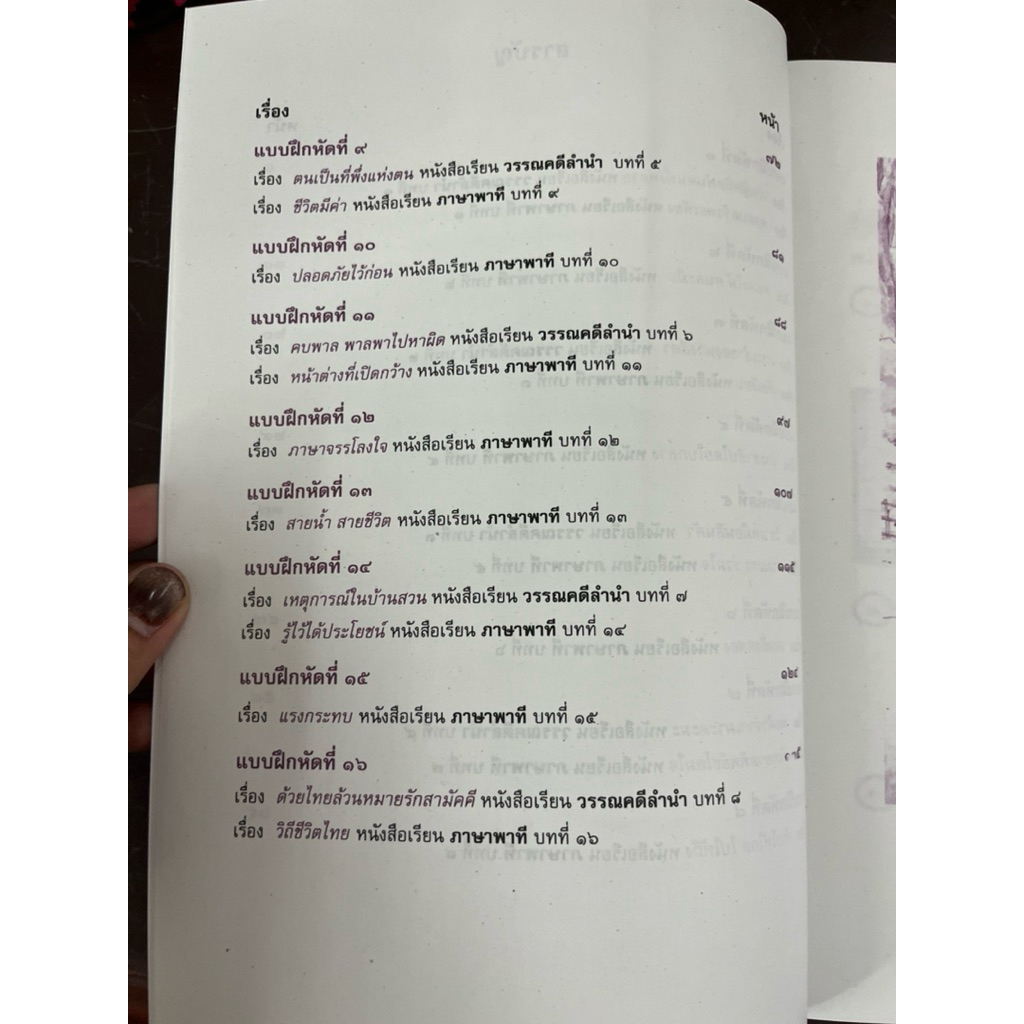 เรื่อง หน้า
แบบฝึกหัดที่ ๙ ๗๒
เรื่อง ตนเป็นที่พึ่งแห่งตน หนังสือเรียน วรรณคดีลำนำ บทที่ ๕
เรื่อง ชีวิตมีค่า หนังสือเรียน ภาษาพาที บทที่ ๙
แบบฝึกหัดที่ ๑๐ ๘๑
เรื่อง ปลอดภัยไว้ก่อน หนังสือเรียน ภาษาพาที บทที่ ๑๐
แบบฝึกหัดที่ ๑๑ ๘๘
เรื่อง คบพาล พาลพาไปหาผิด หนังสือเรียน วรรณคดีลำนำ บทที่ ๖
เรื่อง หน้าต่างที่เปิดกว้าง หนังสือเรียน ภาษาพาที บทที่ ๑๑
แบบฝึกหัดที่ ๑๒ ๙๗
เรื่อง ภาษาจรรโลงใจ หนังสือเรียน ภาษาพาที บทที่ ๑๒
แบบฝึกหัดที่ ๑๓ ๑๐๗
เรื่อง สายน้ำ สายชีวิต หนังสือเรียน ภาษาพาที บทที่ ๑๓
แบบฝึกหัดที่ ๑๔ ๑๑๕
เรื่อง เหตุการณ์ในบ้านสวน หนังสือเรียน วรรณคดีลำนำ บทที่ ๗
เรื่อง รู้ไว้ได้ประโยชน์ หนังสือเรียน ภาษาพาที บทที่ ๑๔
แบบฝึกหัดที่ ๑๕ ๑๒๔
เรื่อง แรงกระทบ หนังสือเรียน ภาษาพาที บทที่ ๑๕
แบบฝึกหัดที่ ๑๖
เรื่อง ด้วยไทยล้วนหมายรักสามัคคี หนังสือเรียน วรรณคดีลำนำ บทที่ ๘
เรื่อง วิถีชีวิตไทย หนังสือเรียน ภาษาพาที บทที่ ๑๖